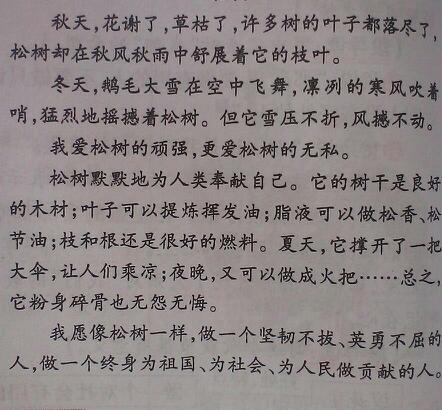 秋天,花谢了,草枯了,许多树的叶子都落尽了,
松树却在秋风秋雨中舒展着它的枝叶。
冬天,鹅毛大雪在空中飞舞,凛冽的寒风吹着
哨,猛烈地摇撼着松树。但它雪压不折,风撼不动。
我爱松树的顽强,更爱松树的无私。
松树默默地为人类奉献自己。它的树干是良好
的木材;叶子可以提炼挥发油;脂液可以做松香、松
节油;枝和根还是很好的燃料。夏天,它撑开了一把
大伞,让人们乘凉;夜晚,又可以做成火把……总之,
它粉身碎骨也无怨无悔。
我愿像松树一样,做一个坚韧不拔、英勇不屈的
人,做一个终身为祖国、为社会、为人民做贡献的人。